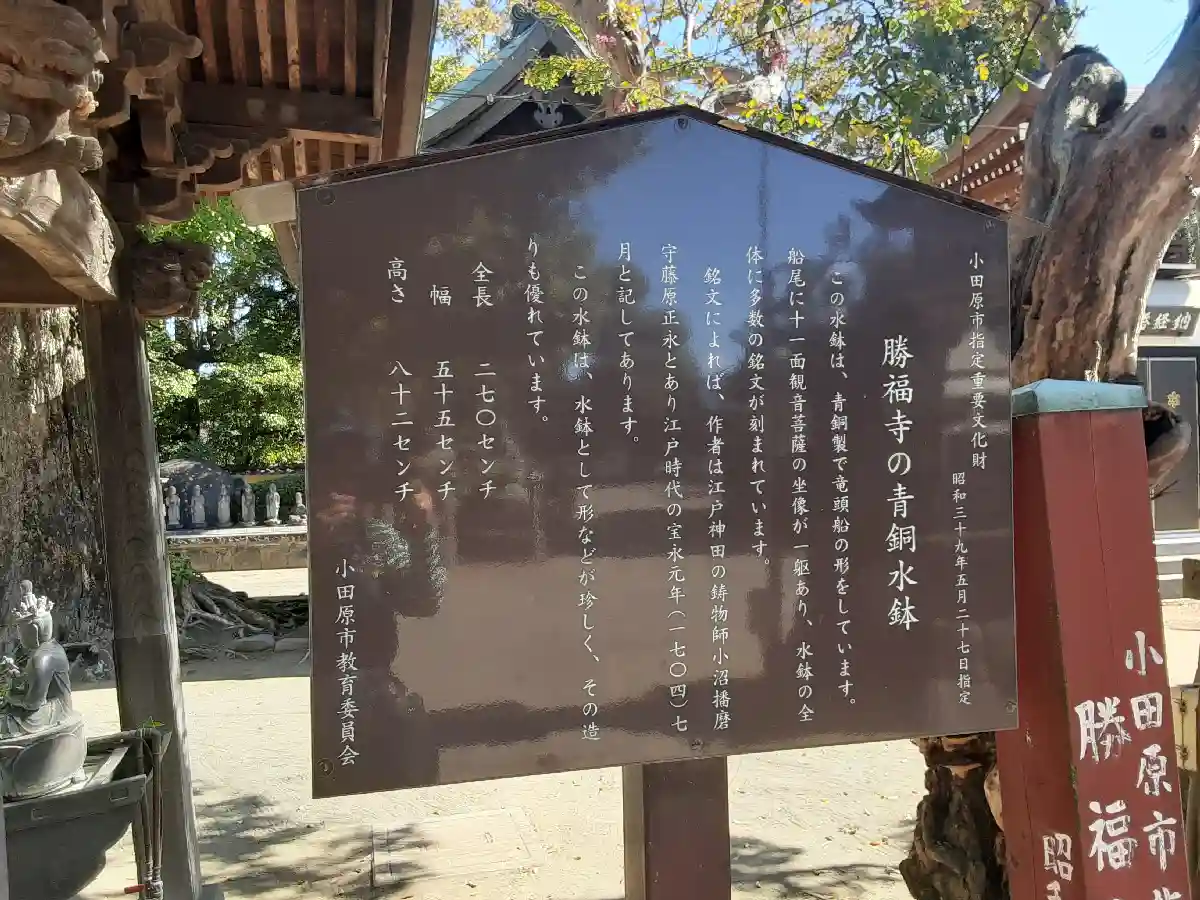 小田原市指定重要文化財
昭和三十九年五月二十七日指定
勝福寺の青銅水鉢
この水鉢は、青銅製で竜頭船の形をしています。
船尾に十一面観音菩薩の坐像が一躯あり、水鉢の全
体に多数の銘文が刻まれています。
銘文によれば、作者は江戸神田の鋳物師小沼播磨
守藤原正永とあり江戸時代の宝永元年(一七〇四)七
月と記してあります。
この水鉢は、水鉢として形などが珍しく、その造
りも優れています。
全長 二七〇センチ
幅 五十五センチ
高さ 八十二センチ
小田原市教育委員会
小田原市
勝福
昭
納経